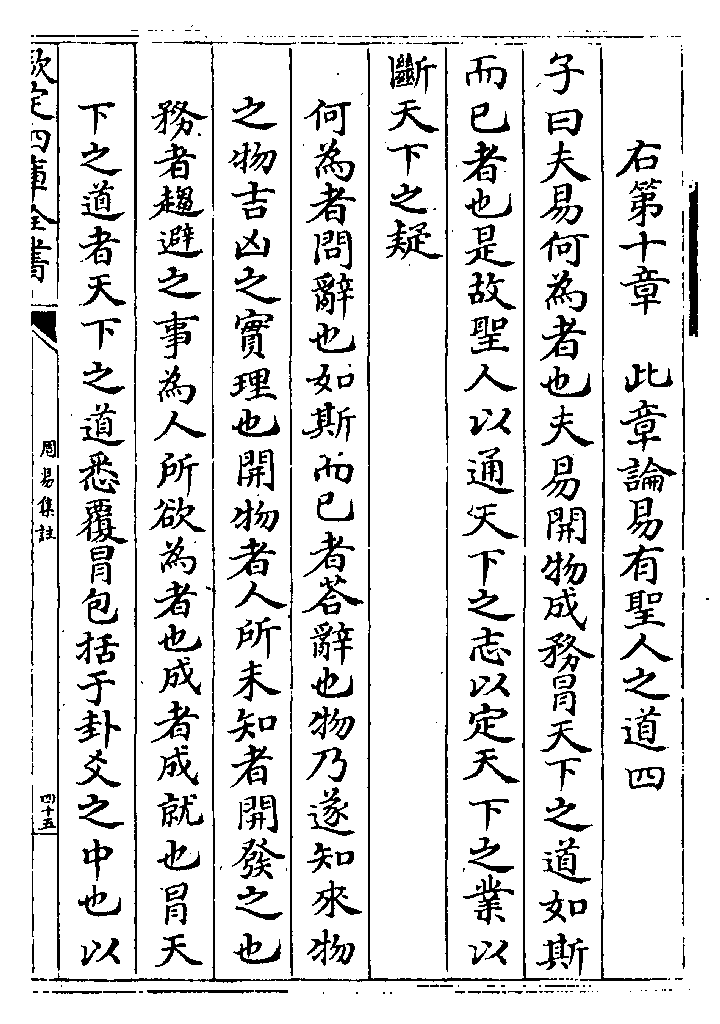 右第十章　此章論易有聖人之道四
子曰夫易何為者也夫易開物成務冐天下之道如斯
而已者也是故聖人以通天下之志以定天下之業以
斷天下之疑
何為者問辭也如斯而已者荅辭也物乃遂知來物
之物吉凶之實理也開物者人所未知者開發之也
務者趨避之事為人所欲為者也成者成就也冐天
下之道者天下之道悉覆冐包括于卦爻之中也以
欽定四庫全書
周易集註
四十五